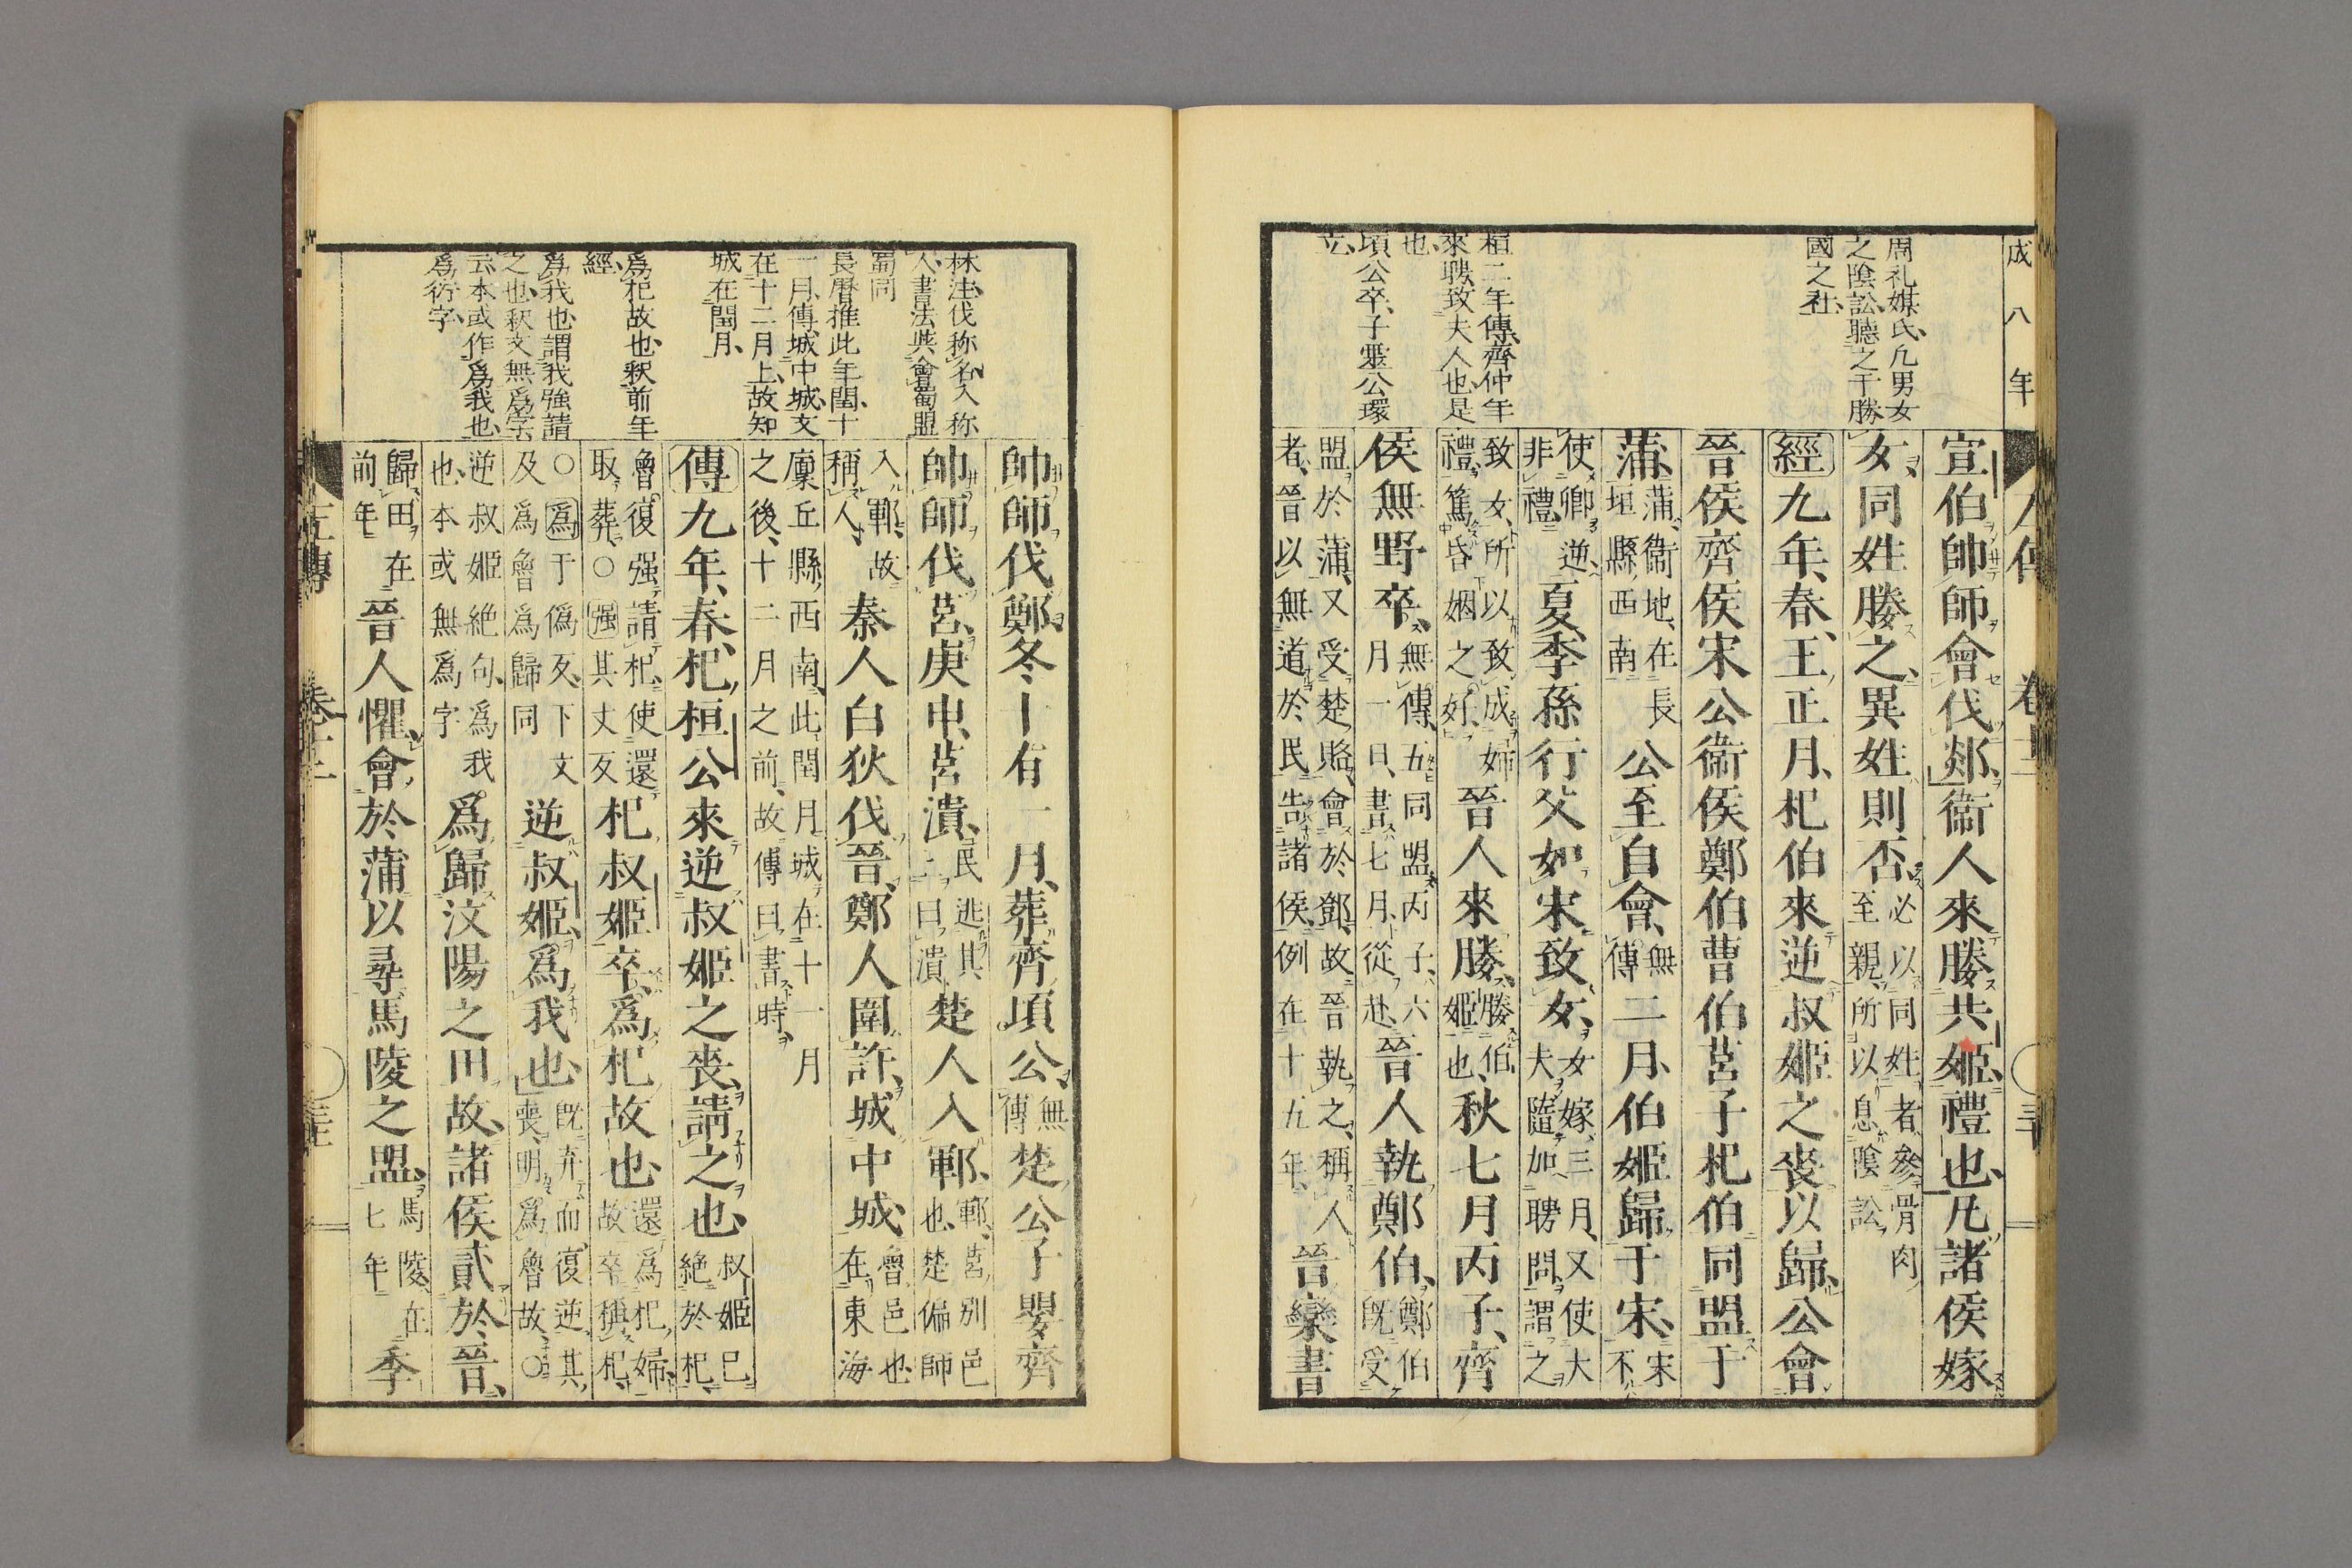 成八年
周礼媒氏凢男女
之陰訟聽之于勝
國之社
桓二年傳齊仲年
來聘致夫人也是
也
頃公卒子靈公環
立
宣伯帥師會伐郯衞人來媵共姬禮也凡諸侯嫁
女同姓媵之異姓則否必以同姓者參骨肉至親所以息陰訟
經九年春王正月杞伯來逆叔姬之喪以歸公會
晉侯齊侯宋公衞侯鄭伯曹伯莒子杞伯同盟于
蒲蒲衞地在長垣縣西南公至自會無傳二月伯姬歸于宋宋不
使卿逆非禮夏季孫行父如宋致女女嫁三月又使大夫隨加聘問謂之
致女所以致成婦禮篤昏姻之好晉人來媵媵伯姬也秋七月丙子齊
侯無野卒無傳五同盟丙子六月一日書七月從赴晉人執鄭伯鄭伯既受
盟於蒲又受楚賂會於鄧故晉執之稱人者晉以無道於民告諸侯例在十五年晉欒書
林注伐称名入称
人書法與會蜀盟
蜀同
長曆推此年閏十
一月傳城中城文
在十二月上故知
城在閏月
爲杞故也釈前年
經
爲我也謂我強請
之也釈文無爲字
云本或作爲我也
爲衍字
帥師伐鄭冬十有一月葬齊頃公無傳楚公子嬰齊
帥師伐莒庚申莒潰民逃其上曰潰楚人入鄆鄆莒別邑也楚偏師
入鄆故稱人秦人白狄伐晉鄭人圍許城中城魯邑也在東海
廩丘縣西南此閏月城在十一月之後十二月之前故傳曰書時
傳九年春杞桓公來逆叔姬之喪請之也叔姬已絶於杞
魯復强請杞使還取葬○强其丈反杞叔姬卒爲杞故也還爲杞婦故卒稱杞
○爲于僞反下文及爲魯爲歸同逆叔姬爲我也既弃而復逆其喪明爲魯故○
逆叔姬絶句爲我也本或無爲字爲歸汶陽之田故諸侯貳於晉
歸田在前年晉人懼會於蒲以尋馬陵之盟馬陵在七年季